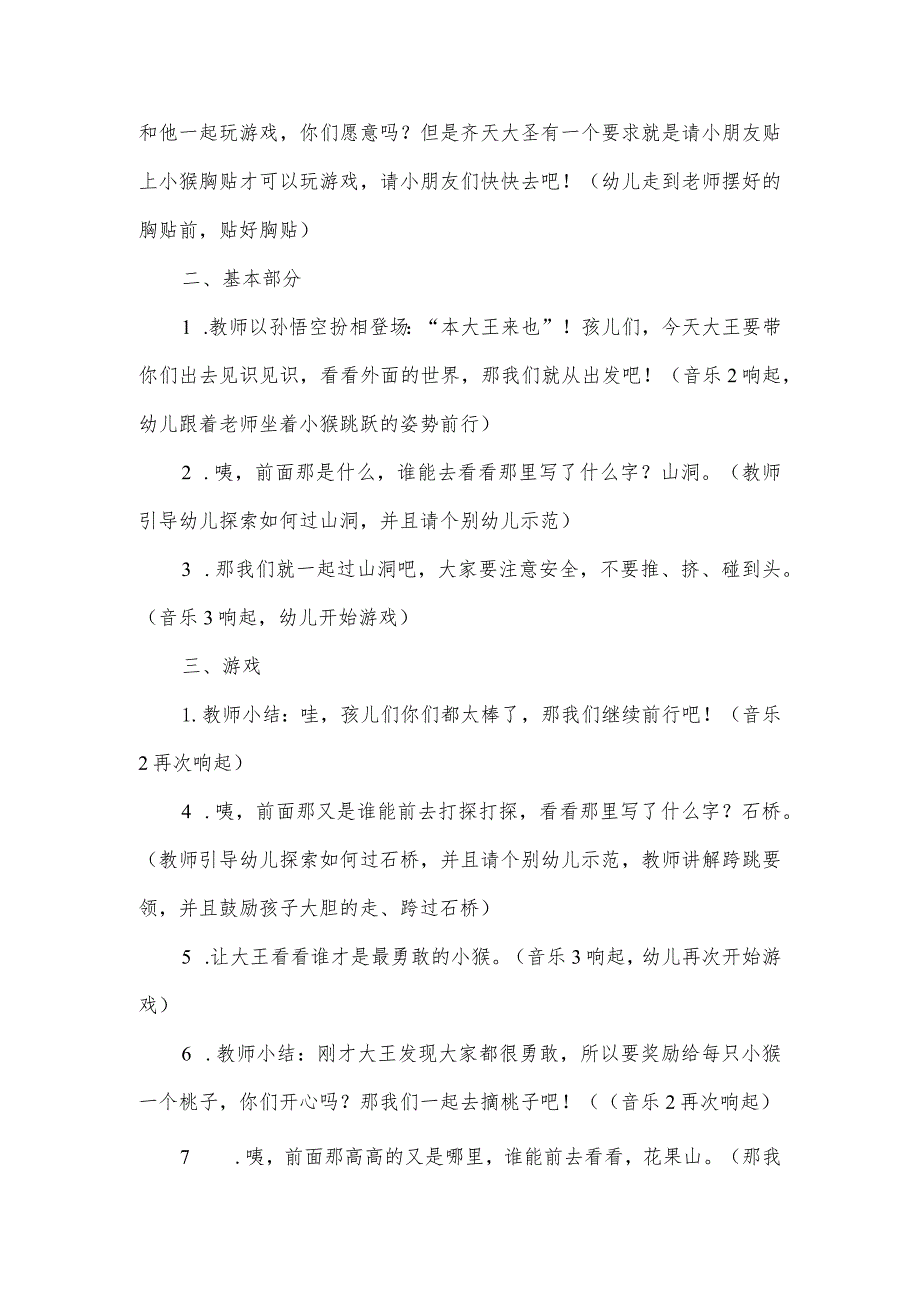 和他一起玩游戏，你们愿意吗？但是齐天大圣有一个要求就是请小朋友贴
上小猴胸贴才可以玩游戏，请小朋友们快快去吧！（幼儿走到老师摆好的
胸贴前，贴好胸贴）
二、基本部分
1 .教师以孙悟空扮相登场：“本大王来也”！孩儿们，今天大王要带
你们出去见识见识，看看外面的世界，那我们就从出发吧！（音乐2响起，
幼儿跟着老师坐着小猴跳跃的姿势前行）
2 .咦，前面那是什么，谁能去看看那里写了什么字？山洞。（教师
引导幼儿探索如何过山洞，并且请个别幼儿示范）
3 .那我们就一起过山洞吧，大家要注意安全，不要推、挤、碰到头。
（音乐3响起，幼儿开始游戏）
三、游戏
1.教师小结：哇，孩儿们你们都太棒了，那我们继续前行吧！（音乐
2再次响起）
4 .咦，前面那又是谁能前去打探打探，看看那里写了什么字？石桥。
（教师引导幼儿探索如何过石桥，并且请个别幼儿示范，教师讲解跨跳要
领，并且鼓励孩子大胆的走、跨过石桥）
5 .让大王看看谁才是最勇敢的小猴。（音乐3响起，幼儿再次开始游
戏）
6 .教师小结：刚才大王发现大家都很勇敢，所以要奖励给每只小猴
一个桃子，你们开心吗？那我们一起去摘桃子吧！（（音乐2再次响起）
7 .咦，前面那高高的又是哪里，谁能前去看看，花果山。（那我